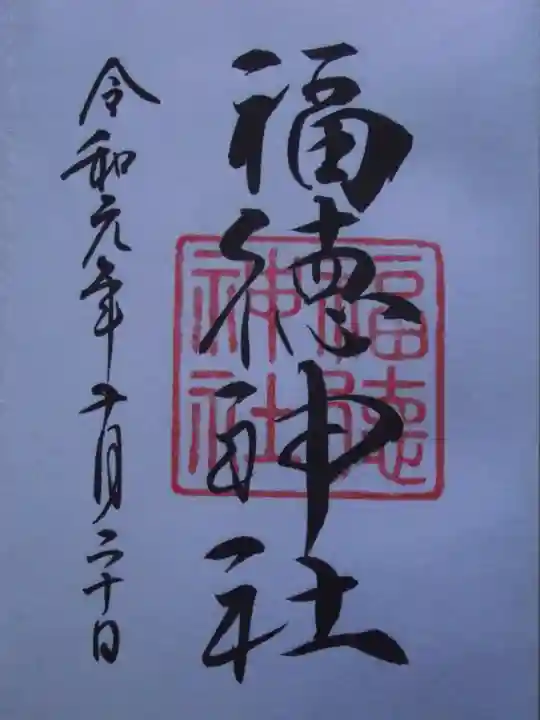 福徳神社
福徳神社
令和元年十一月二十日